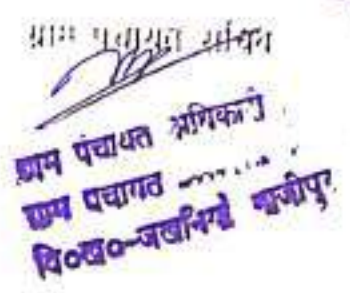 ग्राम पंचायत
ग्राम पंचायत अधिकारी
ग्राम पंचायत
वि०ख०-जखनियाँ गाजीपुर